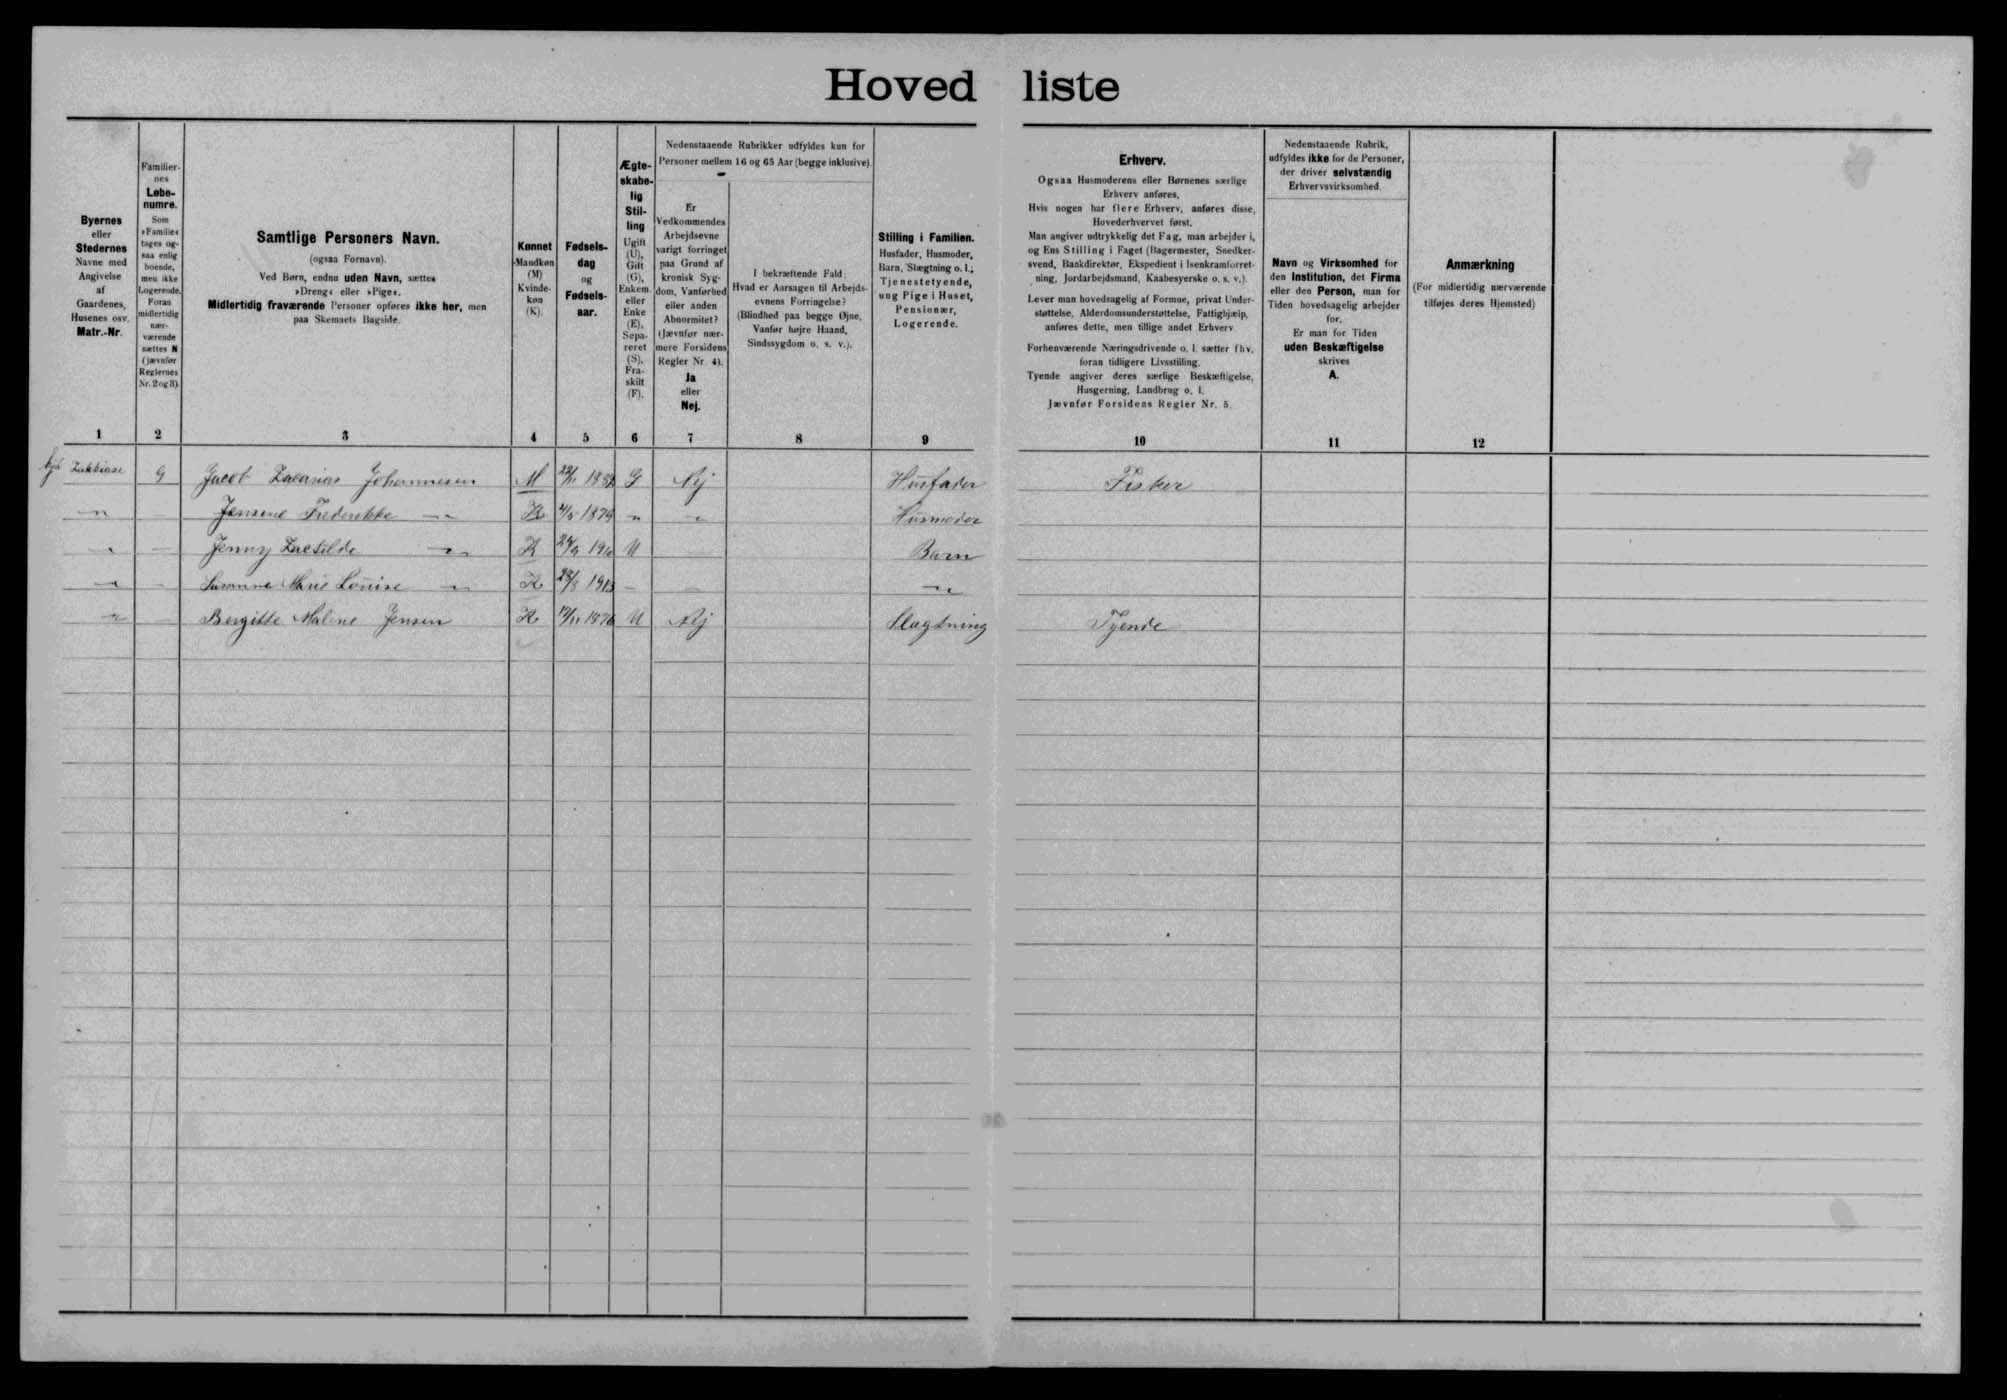 Hovedliste
Byernes
eller
Stedernes
Navne med
Angivelse
af
Gaardenes,
Husenes osv.
Matr.-Nr.
Familier-
nes
Løbe-
numre.
Som
»Familie«
tages og-
saa enlig
boende,
men ikke
Logerende.
Foran
midlertidig
nær-
værende
sættes N
(jævnfør
Reglernes
Nr. 2 og 3).
Samtlige Personers Navn.
(ogsaa Fornavn).
Ved Børn, endnu uden Navn, sættes
»Dreng« eller »Pige«.
Midlertidig fraværende Personer opføres ikke her, men
paa Skemaets Bagside.
Kønnet
Mandkøn
(M)
Kvinde-
køn
(K).
Fødsels-
dag
og
Fødsels-
aar.
Ægte-
skabe-
lig
Stil-
ling
Ugift
(U),
Gift
(G),
Enkem.
eller
Enke
(E),
Sepa-
reret
(S),
Fra-
skilt
(F).
Nedenstaaende Rubrikker udfyldes kun for
Personer mellem 16 og 65 Aar (begge inklusive).
Er
Vedkommendes
Arbejdsevne
varigt forringet
paa Grund af
kronisk Syg-
dom, Vanførhed
eller anden
Abnormitet?
(Jævnfør nær-
mere Forsidens
Regler Nr. 4).
Ja
eller
Nej.
I bekræftende Fald:
Hvad er Aarsagen til Arbejds-
evnens Forringelse?
(Blindhed paa begge Øjne,
Vanfør højre Haand,
Sindssygdom o. s. v.).
Stilling i Familien.
Husfader, Husmoder,
Barn, Slægtning o. l.;
Tjenestetyende,
ung Pige i Huset,
Pensionær,
Logerende.
Erhverv.
Ogsaa Husmoderens eller Børnenes særlige
Erhverv anføres.
Hvis nogen har flere Erhverv, anføres disse,
Hovederhvervet først.
Man angiver udtrykkelig det Fag, man arbejder i,
og Ens Stilling i Faget (Bagermester, Snedker-
svend, Bankdirektør, Ekspedient i Isenkramforret-
ning, Jordarbejdsmand, Kaabesyerske o. s. v.).
Lever man hovedsagelig af Formue, privat Under-
støttelse, Alderdomsunderstøttelse, Fattighjælp,
anføres dette, men tillige andet Erhverv
Forhenværende Næringsdrivende o. l. sætter fhv.
foran tidligere Livsstilling.
Tyende angiver deres særlige Beskæftigelse,
Husgerning, Landbrug o. l.
Jævnfør Forsidens Regler Nr. 5.
Nedenstaaende Rubrik,
udfyldes ikke for de Personer,
der driver selvstændig
Erhvervsvirksomhed.
Navn og Virksomhed for
den Institution, det Firma
eller den Person, man for
Tiden hovedsagelig arbejder
for.
Er man for Tiden
uden Beskæftigelse
skrives
A.
Anmærkning
(For midlertidig nærværende
tilføjes deres Hjemsted)
1 2 3 4 5 6 7 8 9 10 11 12
9 Jacob Zacarias Johannesen M G Nej Husfader Fisker
Jensine Frederikke K 1879 Husmoder
Jenny K U Barn
Susanne Marie Louise K 28/3 1913
Bergitte Malene Jensen K 1876 U Nej Slagtning Tyende